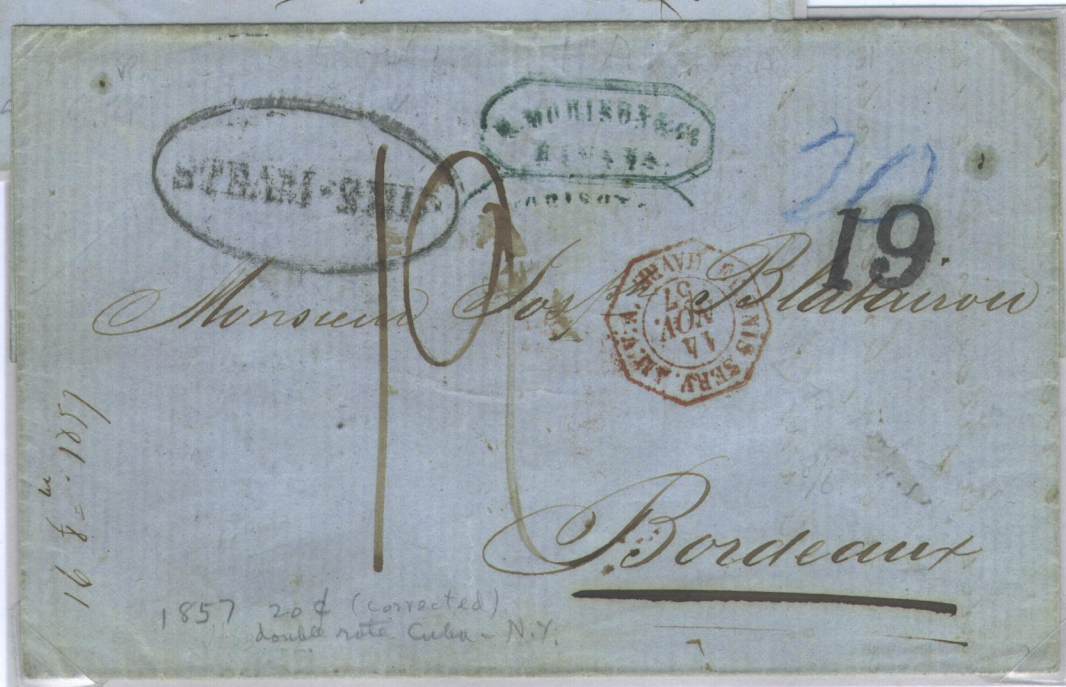 STEAM-SHIP
MORISON & Co
HAVANA.
20
19
19
Monsieur Joseph
ETATS-UNIS SERV. AM. V.A. HAVRE
14
NOV.
57
Bordeaux
16 8bre. 1857
1857 20¢ (corrected)
double rate Cuba - N.Y.